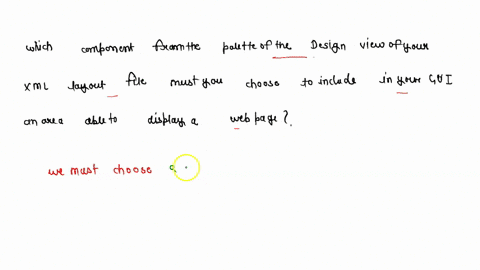 which component from the palette of the Design view of your
XML layout file must you choose to include in your GUI
an area able to display a web page?.
we must choose a